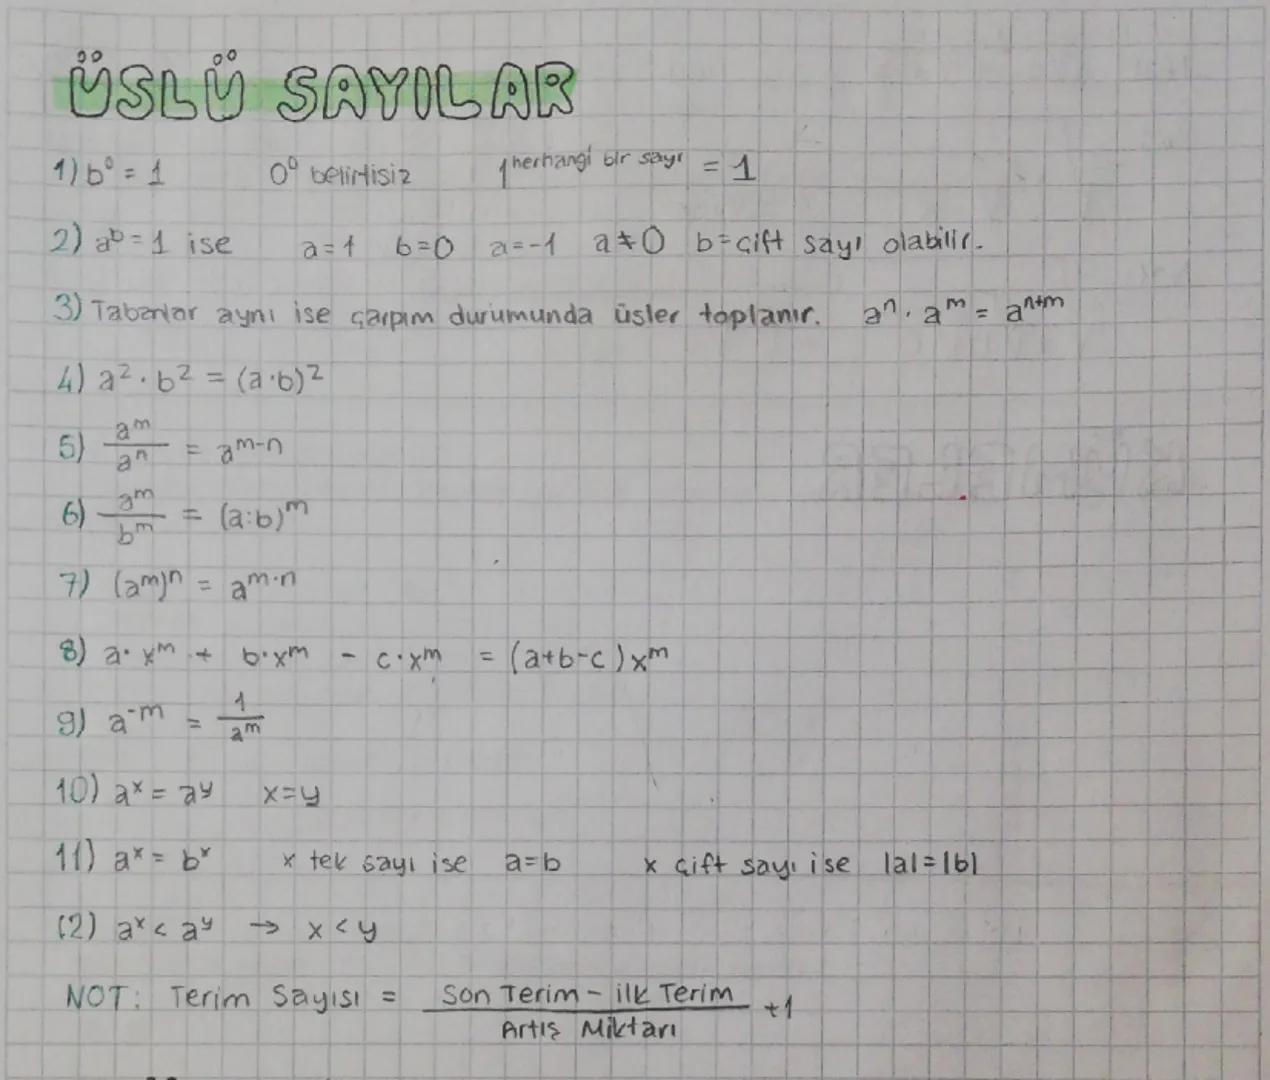 ÜSLÜ SAYILAR
1) b⁰ = 1 0⁰ belirtisiz 1^herhangi bir sayı = 1
2) a^b = 1 ise a=1 b=0 a=-1 a≠0 b=çift sayı olabilir.
3) Tabanlar aynı ise çarpım durumunda üsler toplanır. aⁿ · a^m = a^(n+m)
4) a² · b² = (a·b)²
5) a^m / aⁿ = a^(m-n)
6) a^m / b^m = (a:b)^m
7) (a^m)ⁿ = a^(m·n)
8) a·x^m + b·x^m - c·x^m = (a+b-c)x^m
9) a^(-m) = 1 / a^m
10) a^x = a^y x=y
11) a^x = b^x x tek sayı ise a=b x çift sayı ise |a|=|b|
12) a^x < a^y → x < y
NOT: Terim Sayısı = Son Terim - ilk Terim / Artış Miktarı +1